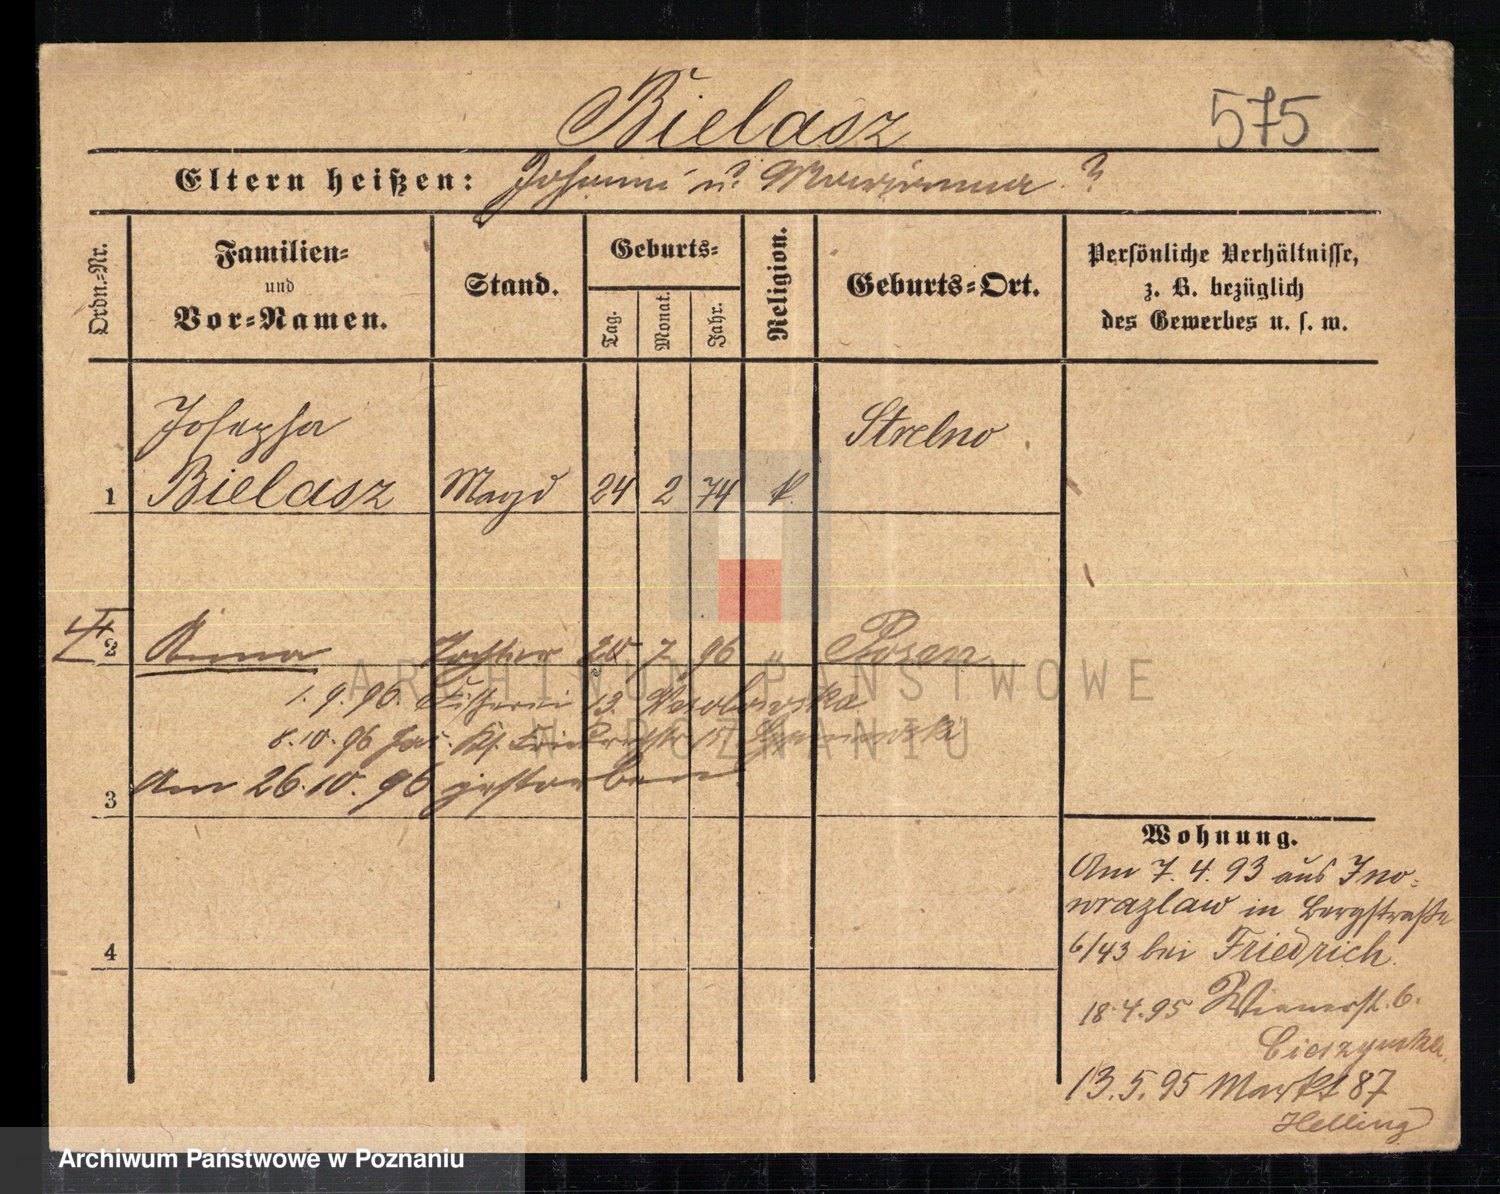 Bielasz
575
Eltern heißen: Johann u. Marianna ?
Ordn.-Nr.
Familien-
und
Vor-Namen.
Stand.
Geburts-
Tag.
Monat.
Jahr.
Religion.
Geburts-Ort.
Persönliche Verhältnisse,
z. B. bezüglich
des Gewerbes u. s. w.
Josepha
Bielasz
1
Magd
24
2
74
k.
Strelno
2
Anna
Tochter
20
7
96
"
Posen
1.9.96. Fischerei 13.
8.10.96
Am 26.10.96 gestorben
3
4
Wohnung.
Am 7.4.93 aus Ino-
wrazlaw in Bergstraße
6/43 bei Friedrich.
18.4.95 Wienerst. 6.
13.5.95 Markt 87
Helling
ARCHIWUM PAŃSTWOWE
W POZNANIU
Archiwum Państwowe w Poznaniu